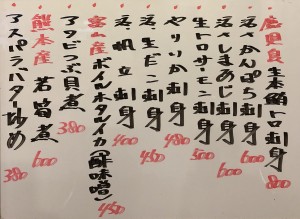 鹿児島 生本鮪トロ刺身 800
活〆かんぱち刺身 600
活〆しまあじ刺身 600
生トロサーモン刺身 500
やりいか刺身 480
活、生だこ刺身 450
活、帆立刺身 400
富山産 ボイルホタルイカ(酢味噌) 450
アカニシツブ貝煮 380
熊本産 若筍煮 600
アスパラバター炒め 380